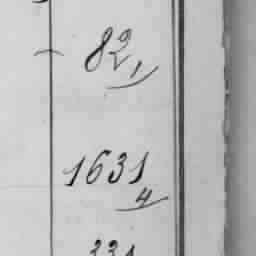 82/1
1631/4
331